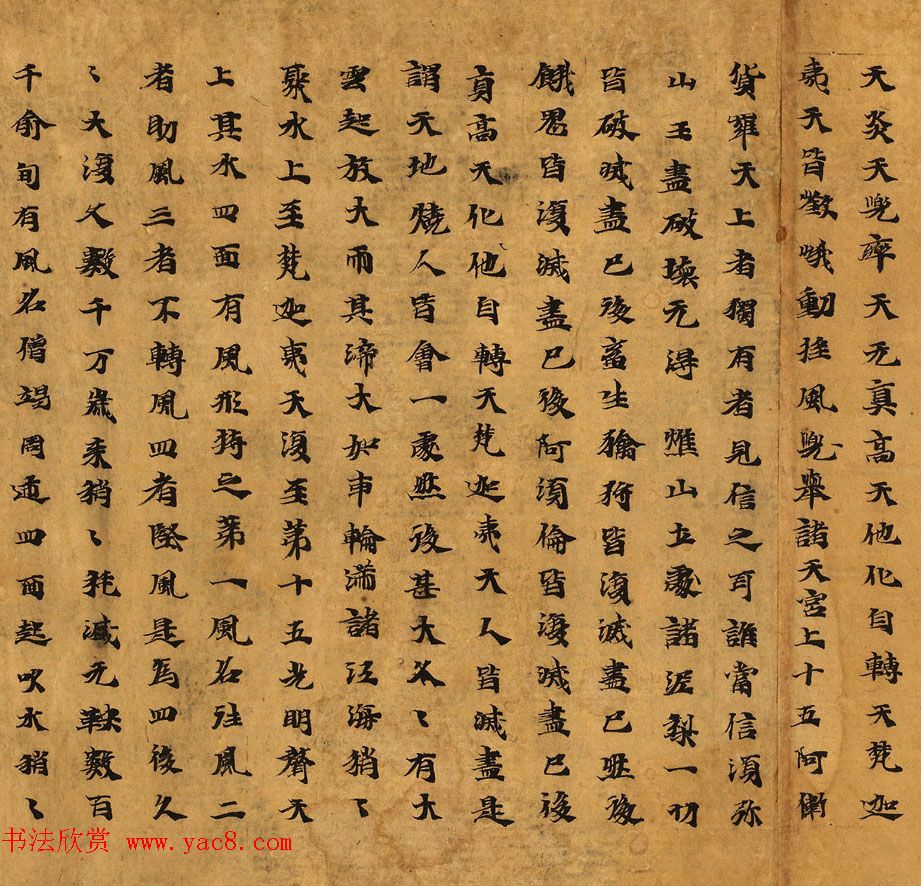 天炎天兜率天无真高天他化自轉天梵迦
夷天皆欻峨動挂風兜舉諸天宮上十五阿衛
貨羅天上者獨有者見信之耳誰當信須弥
山王盡破壞无得燋山立處諸泥犁一切
皆破滅盡已後畜生獪狩皆復滅盡已然後
餓鬼皆復滅盡已後阿須倫皆復滅盡已後
真高天化他自轉天梵迦夷天人皆滅盡是
謂天地燒人皆會一處然後甚大久〻有大
雲起放大雨其渧大如車輪滿諸江海稍〻
乘水上至梵迦夷天復至第十五光明聲天
上其水四面有風形持之第一風名住風二
者助風三者不轉風四者堅風是爲四後久
〻大復久數千万歲乘稍〻耗減无鞅數百
千俞旬有風名僧竭周通四面起吹水稍〻
书法欣赏 www.yac8.com